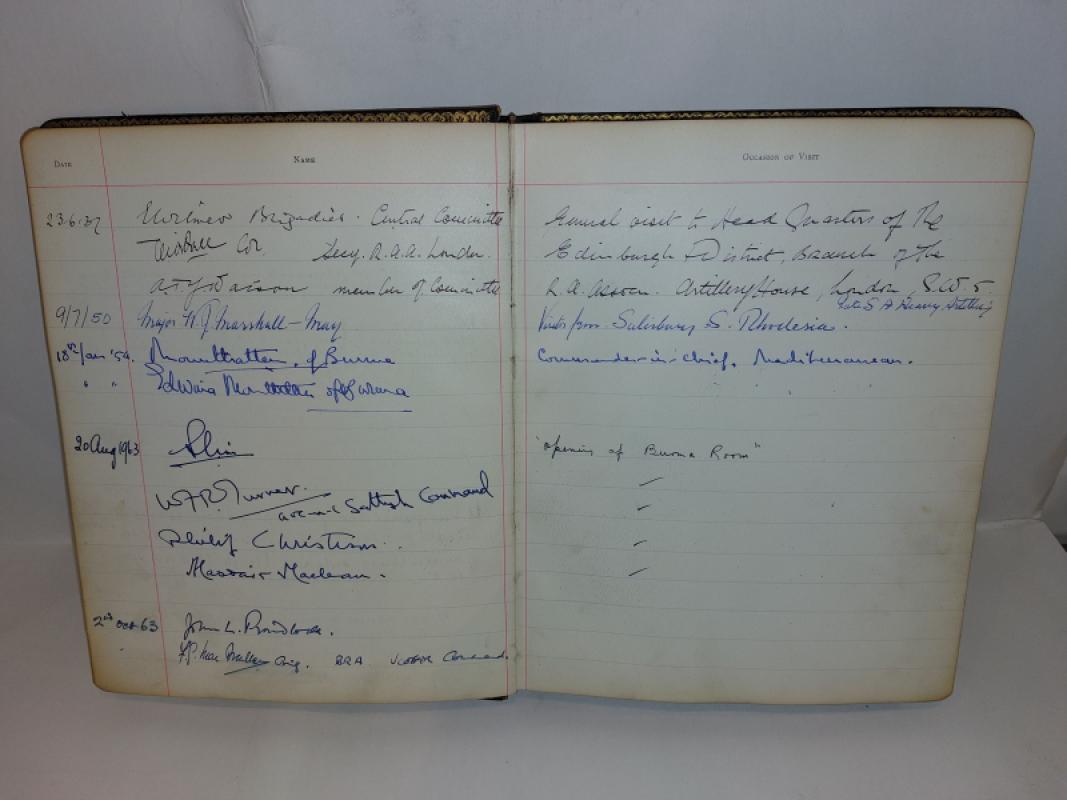 DATE NAME OCCASION OF VISIT
23.6.37 Brigadier. Central Committee General visit to Head Quarters of the
Col Secy. R.A.A. London. Edinburgh District, Branch of the
member of Committee R.A. Assocn. Artillery House, London, S.W.
9/7/50 Major Marshall-May Visitor from Salisbury S. Rhodesia. S A Heavy Artillery
18th Jan '54. Mountbatten of Burma Commander-in-Chief, Mediterranean.
" " Edwina Mountbatten of Burma
20 Aug 1963 Slim "opening of Burma Room"
Turner.
Scottish Command
Philip Christison.
Alasdair Maclean.
2nd Oct 63 John L.
Brig. BRA Command.